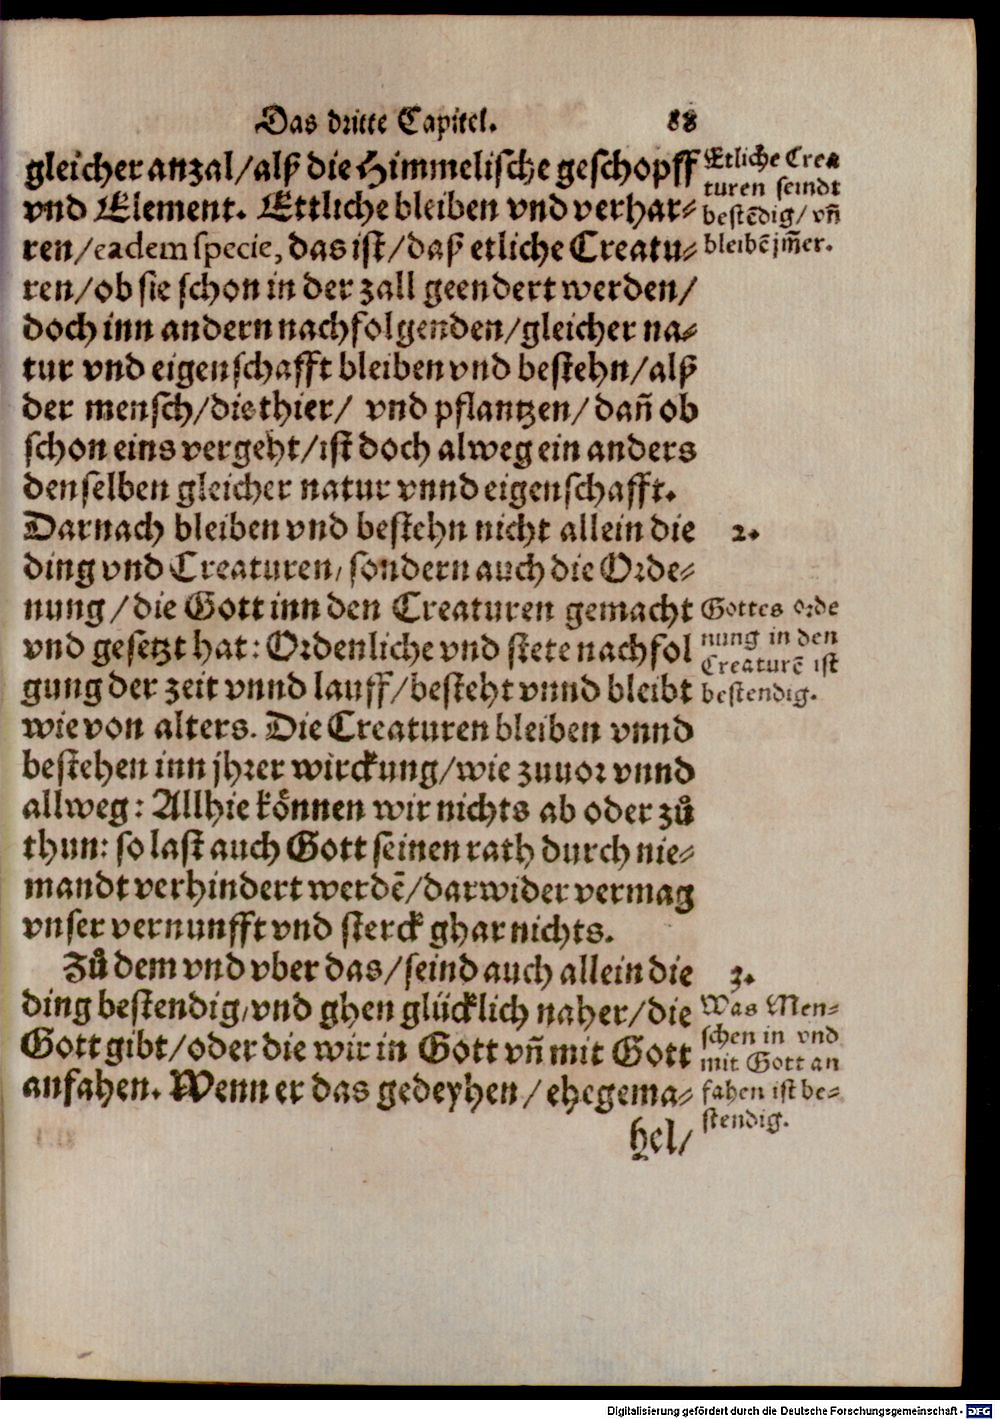 Das dritte Capitel. 88
gleicher anzal/alß die Himmelische geschopff
vnd Element. Ettliche bleiben vnd verhar-
ren/eadem specie, das ist/daß etliche Creatu-
ren/ob sie schon in der zall geendert werden/
doch inn andern nachfolgenden/gleicher na-
tur vnd eigenschafft bleiben vnd bestehn/alß
der mensch/die thier/ vnd pflantzen/dañ ob
schon eins vergeht/ist doch alweg ein anders
denselben gleicher natur vnnd eigenschafft.
Darnach bleiben vnd bestehn nicht allein die
ding vnd Creaturen/sondern auch die Orde-
nung/die Gott inn den Creaturen gemacht
vnd gesetzt hat: Ordenliche vnd stete nachfol
gung der zeit vnnd lauff/besteht vnnd bleibt
wie von alters. Die Creaturen bleiben vnnd
bestehen inn jhrer wirckung/wie zuuor vnnd
allweg: Allhie können wir nichts ab oder zů
thun: so last auch Gott seinen rath durch nie-
mandt verhindert werdē/darwider vermag
vnser vernunfft vnd sterck ghar nichts.
Zů dem vnd vber das/seind auch allein die
ding bestendig/vnd ghen glücklich naher/die
Gott gibt/oder die wir in Gott vñ mit Gott
anfahen. Wenn er das gedeyhen/ ehegema-
hel/
Etliche Crea
turen seindt
bestēdig/vñ
bleibē jm̃er.
2.
Gottes orde
nung in den
Creaturē ist
bestendig.
3.
Was Men-
schen in vnd
mit Gott an
fahen ist be-
stendig.
Digitalisierung gefördert durch die Deutsche Forschungsgemeinschaft - DFG